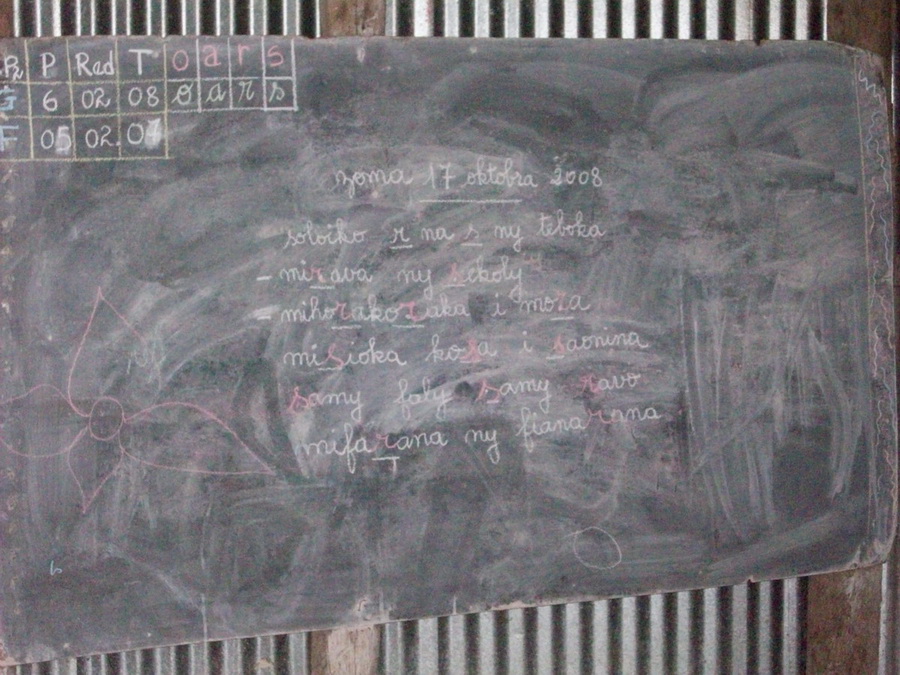 P Red T o a r s
G 6 02 08 o a r s
F 05 02 07
zoma 17 oktobra 2008
soloiko r na s ny teboka
- mirava ny sekoly
- mihorakoraka i mora
misioka kosa i saonina
samy faly samy ravo
mifarana ny fianarana
6